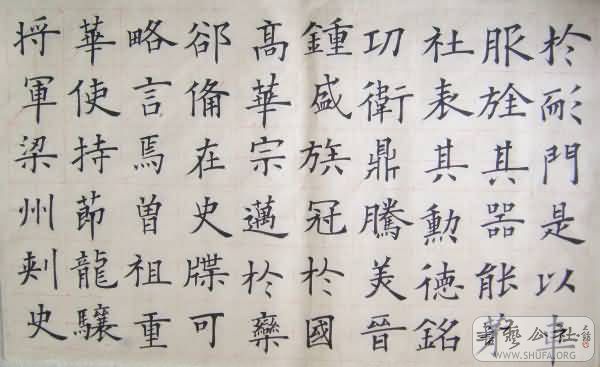 於耏門是以車
服旌其器能茅
社表其勳德銘
功衛鼎騰美晉
鍾盛族冠於國
髙華宗邁於欒
郤俻在史牒可
略言焉曾祖重
華使持節龍驤
将軍梁州刺史
書藝公社
WWW.SHUFA.ORG